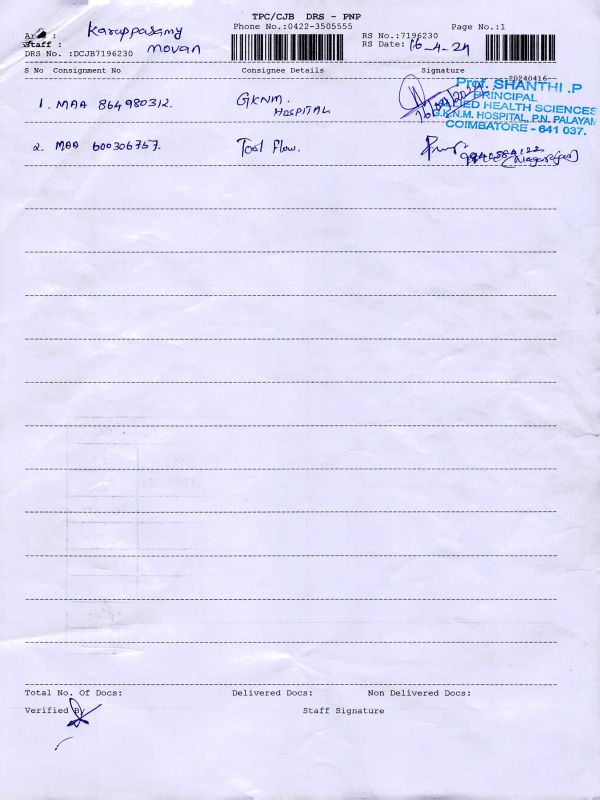 TPC/CJB DRS - PNP
Phone No.:0422-3505555 Page No.:1
Karuppasamy
Staff : movan
DRS No. :DCJB7196230
RS No.:7196230
RS Date: 16-4-24
S No Consignment No Consignee Details Signature
20240416
1. MAA 864980312. GKNM. HOSPITAL
Prof. SHANTHI .P
PRINCIPAL
HEALTH SCIENCES
G.K.N.M. HOSPITAL, P.N. PALAYAM
COIMBATORE - 641 037.
2. MAA 600306757. Tool Flow.
Total No. Of Docs: Delivered Docs: Non Delivered Docs:
Verified By Staff Signature